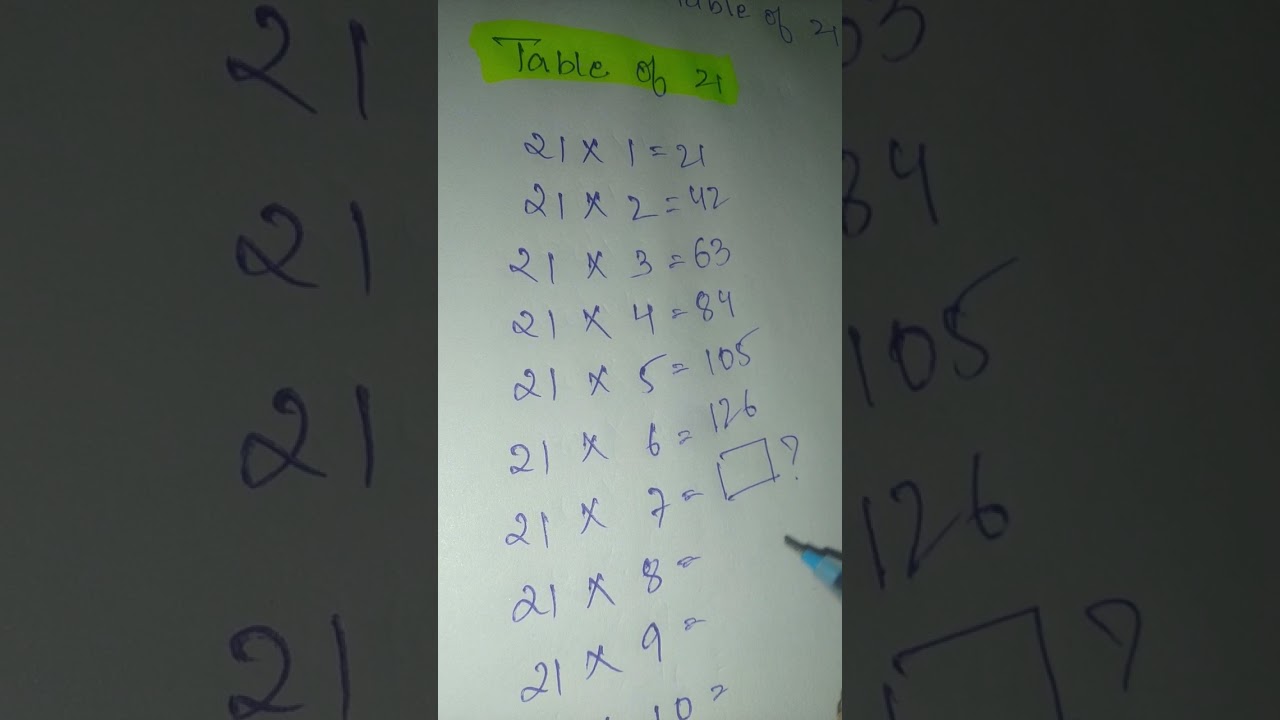 Table of 21
Table of 21
21 × 1 = 21
21 × 2 = 42
21 × 3 = 63
21 × 4 = 84
21 × 5 = 105
21 × 6 = 126
21 × 7 = □ ?
21 × 8 =
21 × 9 =
10 =